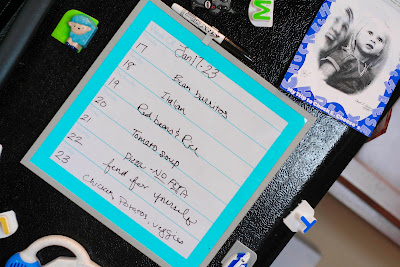 Jan 17-23
17 Bean burritos
18 Italian
19 Red beans & Rice
20 Tomato soup
21 Pizza - NO PIZZA
22 fend for yourself
23 Chicken, Potatoes, veggies
M